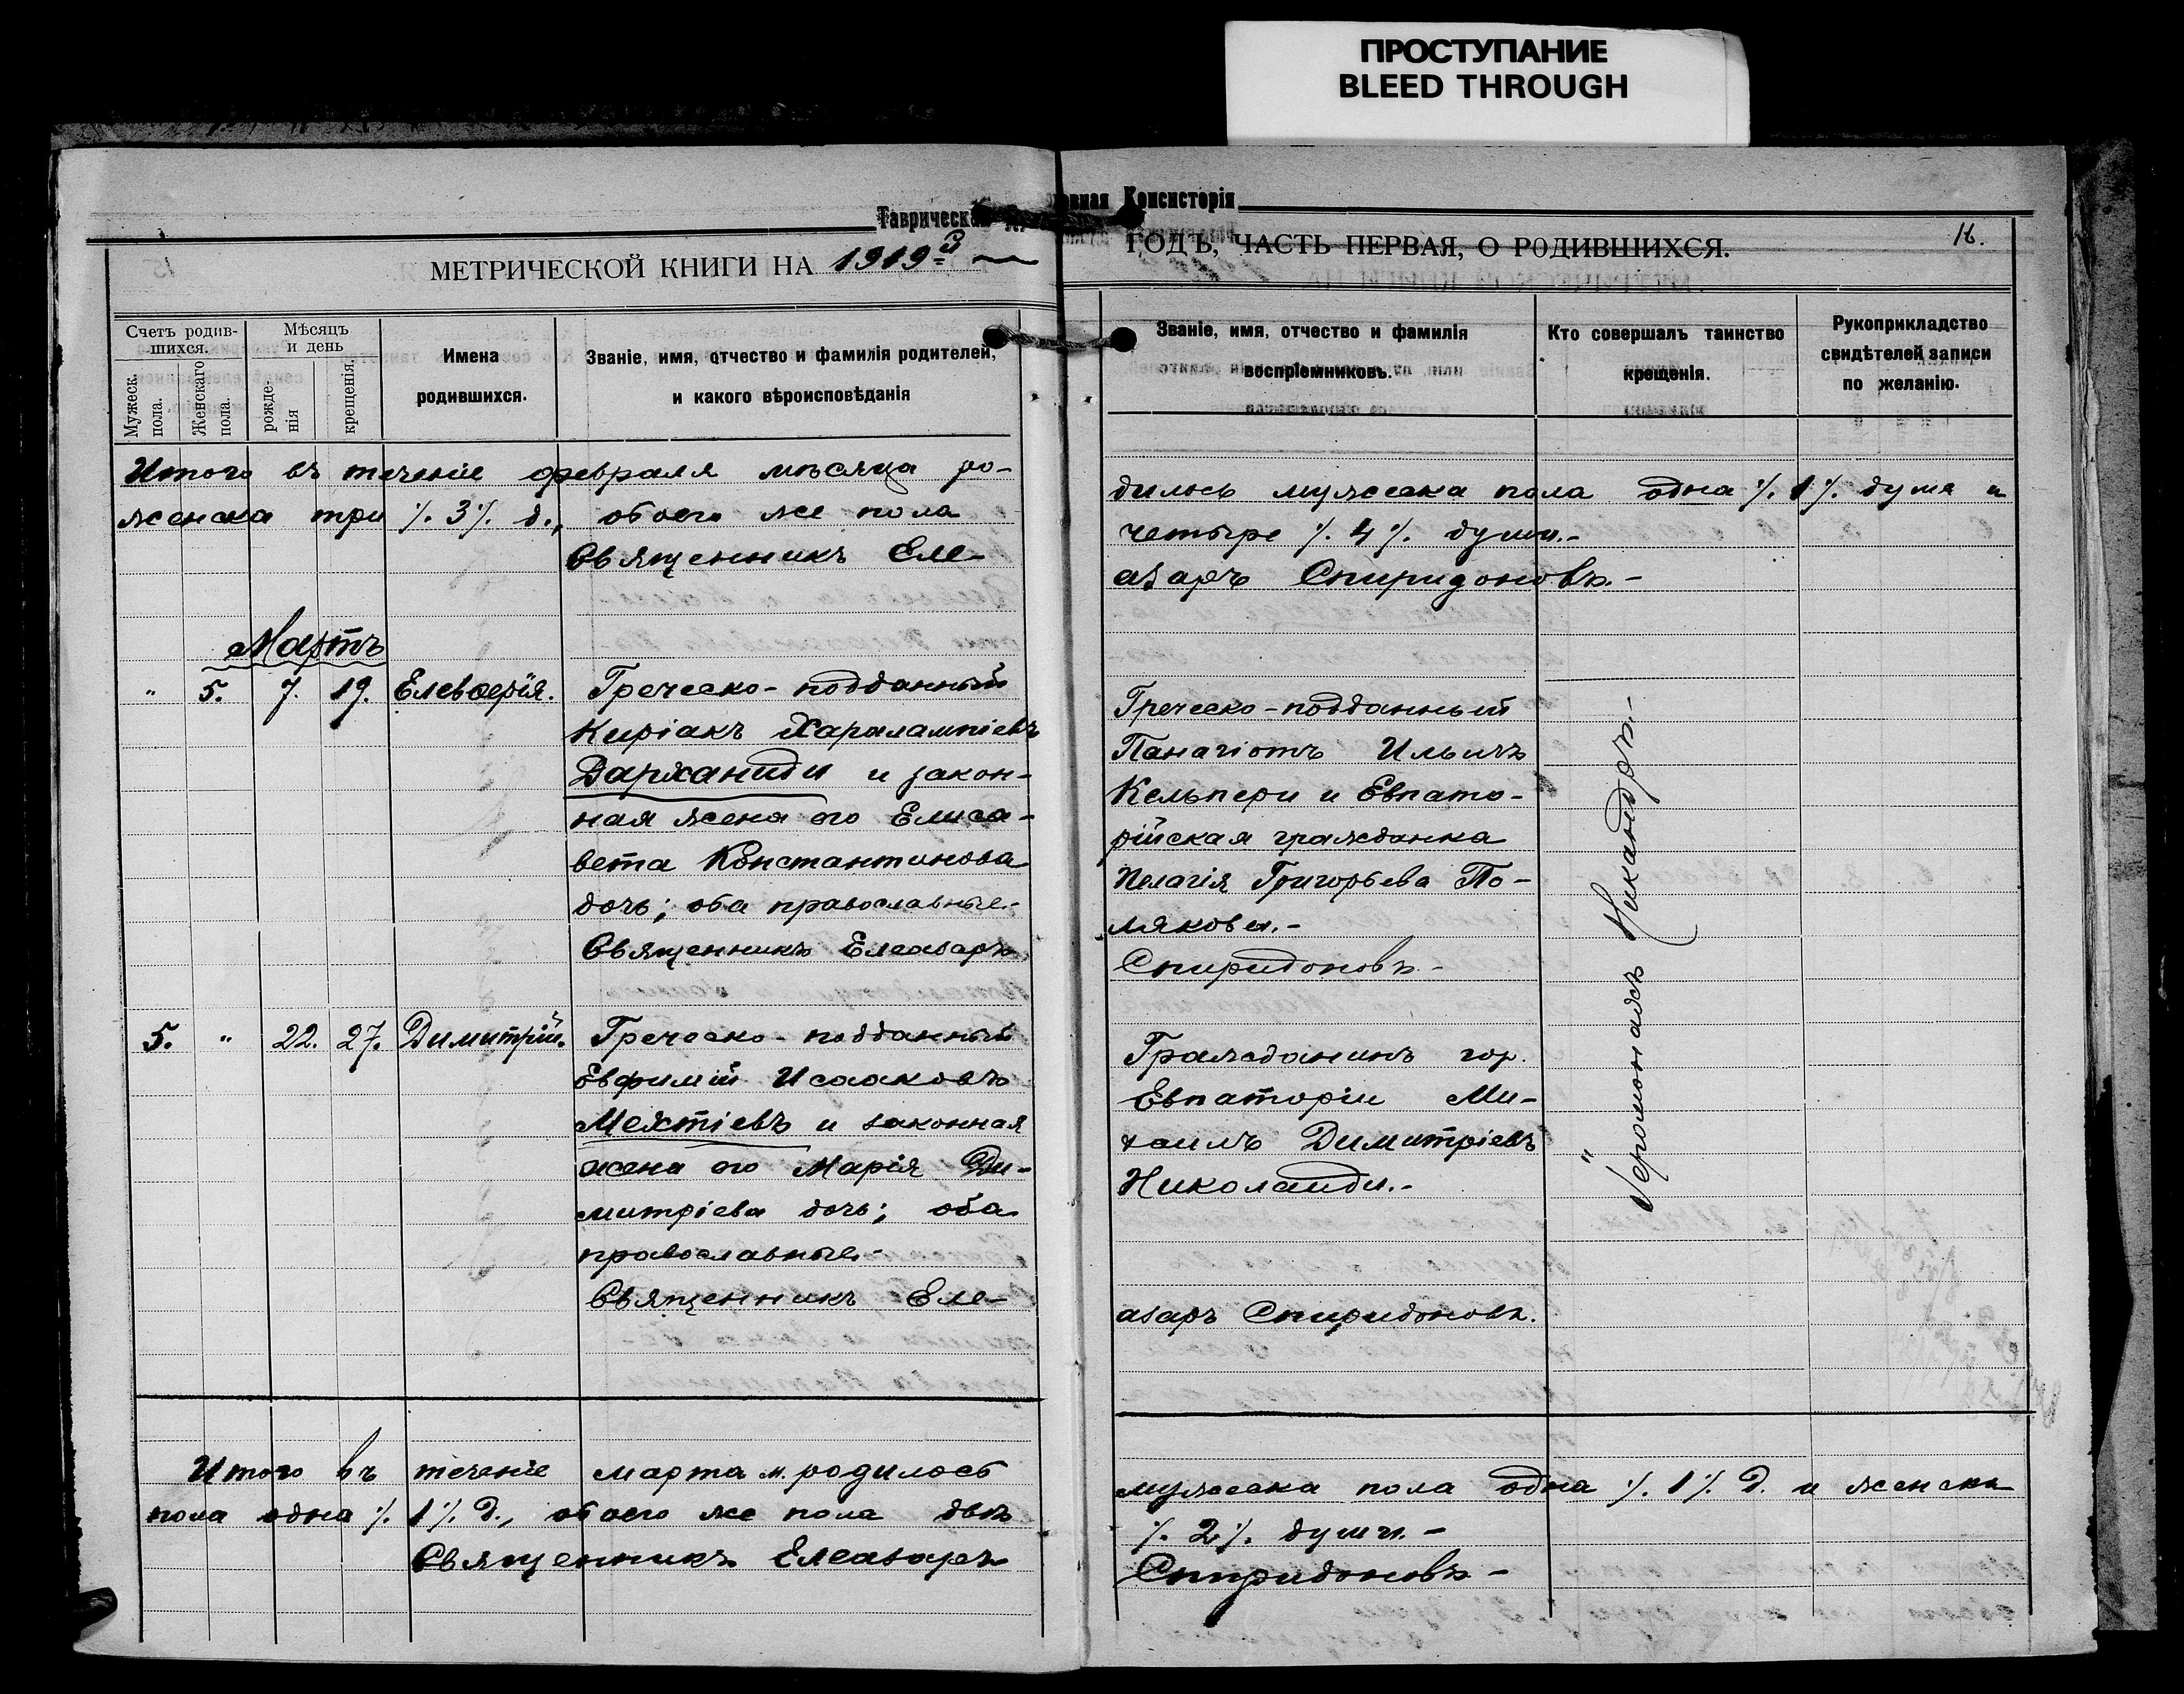 ПРОСТУПАНИЕ
BLEED THROUGH
Таврическая
овная Консисторія
МЕТРИЧЕСКОЙ КНИГИ НА 1919-й
ГОДЪ, ЧАСТЬ ПЕРВАЯ, О РОДИВШИХСЯ.
16.
Счетъ родив-
шихся.
Мужеск.
пола.
Женскаго
пола.
Мѣсяцъ
и день
рожде-
нія
крещенія.
Имена
родившихся.
Званіе, имя, отчество и фамилія родителей,
и какого вѣроисповѣданія
Званіе, имя, отчество и фамилія
воспріемниковъ.
Кто совершалъ таинство
крещенія.
Рукоприкладство
свидѣтелей записи
по желанію.
Итого въ теченіе февраля мѣсяца ро-
дилось мужеска пола одна ⁒ 1 ⁒ душа и
женска три ⁒ 3 ⁒ д., обоего же пола
четыре ⁒ 4 ⁒ души.-
Священникъ Еле-
азаръ Спиридоновъ.-
Мартъ
" 5. 7. 19. Елевѳерія.
Греческо-подданный
Киріакъ Харалампіевъ
Дарханиди и закон-
ная жена его Елиса-
вета Константинова
дочь; оба православные.-
Священникъ Елеазаръ
Греческо-подданный
Панагіотъ Ильичъ
Кельпери и Евпато-
рійская гражданка
Пелагія Григорьева По-
лякова.-
Спиридоновъ.-
Іеромонахъ Никандръ.-
5. " 22. 27. Димитрій.
Греческо-подданный
Евфимій Исааковъ
Мехтіевъ и законная
жена его Марія Ди-
митріева дочь; оба
православные.-
Священникъ Еле-
Гражданинъ гор.
Евпаторіи Ми-
хаилъ Димитріевъ
Николаиди.-
азаръ Спиридоновъ.
"
Итого въ теченіе марта м. родилось
мужеска пола одна ⁒ 1 ⁒ д. и женска
пола одна ⁒ 1 ⁒ д., обоего же пола двѣ
⁒ 2 ⁒ души.-
Священникъ Елеазаръ
Спиридоновъ-